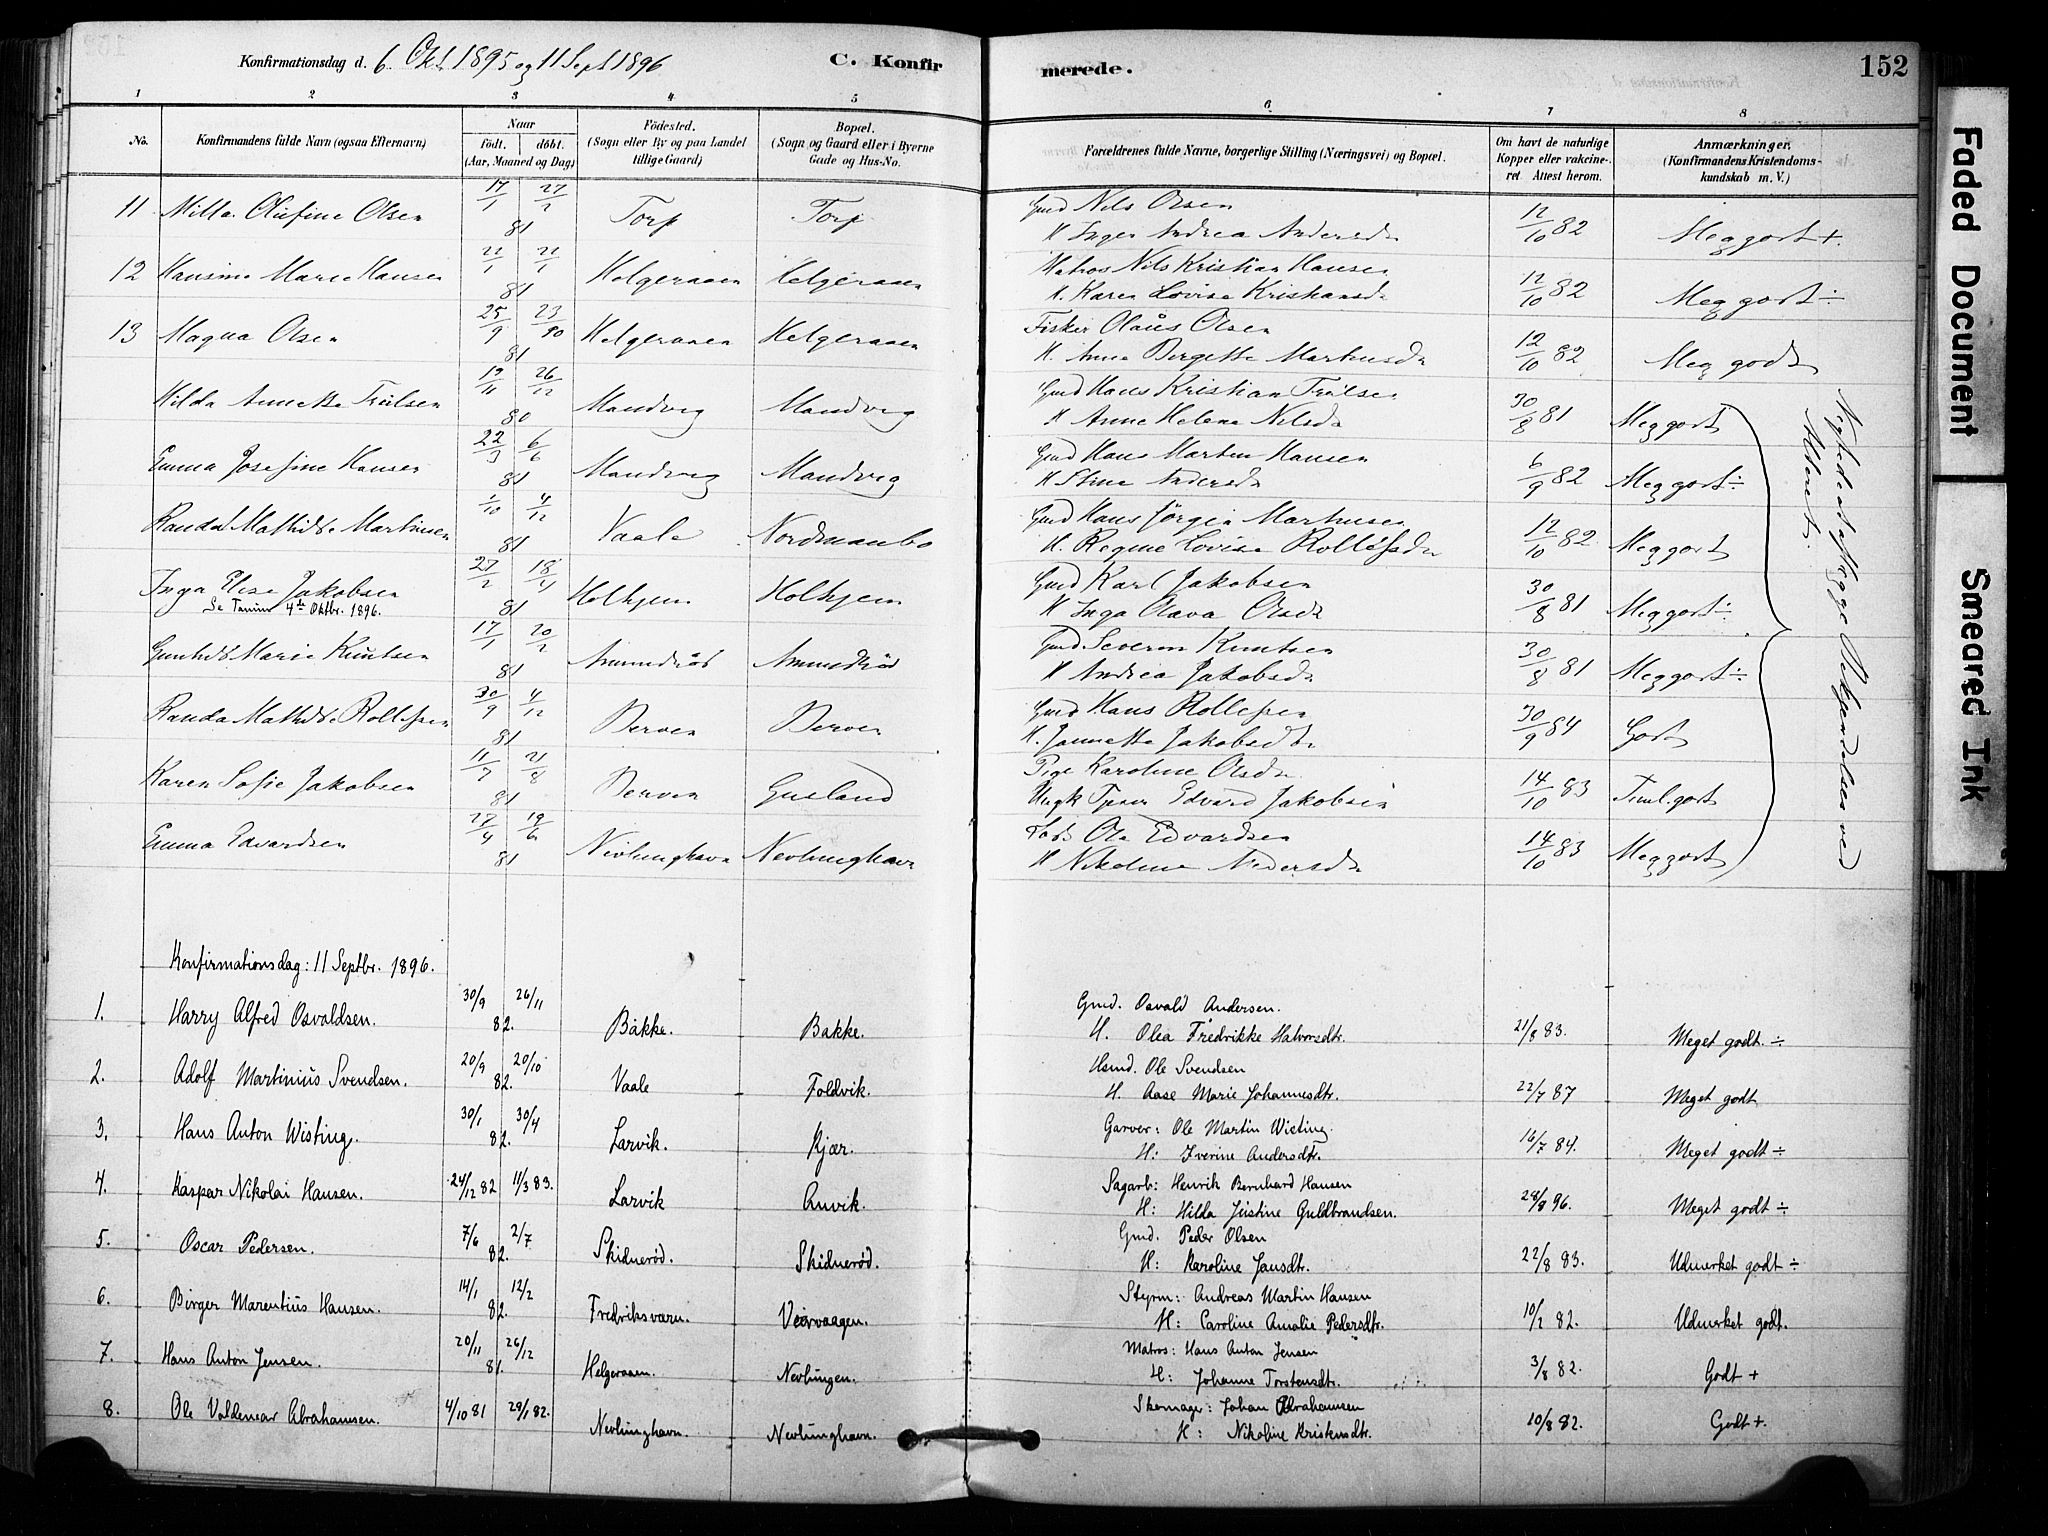 Konfirmationsdag d. 6. Okt. 1895 og 11 Sept 1896
C. Konfirmerede.
152
1 2 3 4 5 6 7 8
No.
Konfirmandens fulde Navn (ogsaa Efternavn)
Naar
Födt. döbt.
(Aar, Maaned og Dag)
Födested.
(Sogn eller By og paa Landet
tillige Gaard)
Bopæl.
(Sogn og Gaard eller i Byerne
Gade og Hus-No.
Forældrenes fulde Navne, borgerlige Stilling (Næringsvei) og Bopæl.
Om havt de naturlige
Kopper eller vakcine-
ret. Attest herom.
Anmærkninger.
(Konfirmandens Kristendoms-
kundskab m. V.)
11 Milla Olufine Olsen 17/1 27/2 81 Torp Torp Gmd Nils Olsen 12/10 82 Meg godt +
H Inger Andrea Andersdr
12 Hansine Marie Hansen 21/1 21/1 81 Helgeraaen Helgeraaen Matros Nils Kristian Hansen 12/10 82 Meg godt ÷
H. Karen Lovise Kristiansdr
13 Magna Olsen 25/9 23/10 81 Helgeraaen Helgeraaen Fisker Olaus Olsen 12/10 82 Meg godt
H. Anne Bergette Martinsdr
Hilda Annette Trulsen 19/11 26/12 80 Mandvig Mandvig Gmd Hans Kristian Trulsen 30/8 81 Meg godt
H Anne Helene Nilsdr
Emma Josefine Hansen 22/3 6/6 81 Mandvig Mandvig Gmd Hans Martin Hansen 6/9 82 Meg godt ÷
H Stine Andersdr
Randa Mathilde Martinsen 1/10 4/12 81 Vaale Nordmanbo Gmd Hans Jörgen Martinsen 12/10 82 Meg godt
H. Regine Lovise Rollefsdr
Inga Elise Jakobsen 27/2 18/4 81 Holhjem Holhjem Gmd Karl Jakobsen 30/8 81 Meg godt ÷
Se Tanum 4de Oktbr. 1896.
H Inga Olava Olsdr
Gunhild Marie Knutsen 17/1 20/2 81 Amundröd Amundröd Gmd Severin Knutsen 30/8 81 Meg godt ÷
H Andrea Jakobsdr
Randa Mathilde Rollefsen 30/9 4/12 81 Berven Berven Gmd Hans Rollefsen 30/9 84 Godt
H. Jannette Jakobsdtr
Karen Sofie Jakobsen 11/7 21/8 81 Berven Gusland Pige Karoline Olsdr 14/10 83 Teml. godt
Ungk Edvard Jakobsen
Emma Edvardsen 27/4 19/6 81 Nevlunghavn Nevlunghavn Lods Ole Edvardsen 14/10 83 Meg godt
H Nikoline Pedersdr
Konfirmationsdag: 11 Septbr. 1896.
1. Harry Alfred Osvaldsen. 30/9 26/11 82. Bakke. Bakke. Gmd. Osvald Andersen. 21/8 83. Meget godt. ÷
H. Olea Fredrikke Halvorsdtr.
2. Adolf Martinius Svendsen. 20/9 20/10 82. Vaale Foldvik. Hsmd. Ole Svendsen 22/7 87 Meget godt
H. Aase Marie Johannesdtr.
3. Hans Anton Wisting. 30/1 30/4 82. Larvik. Kjær. Garver: Ole Martin Wisting. 16/7 84. Meget godt ÷
H: Iverine Andersdtr.
4. Kaspar Nikolai Hansen. 24/12 82 11/3 83. Larvik Anvik. Sagarb: Henrik Bernhard Hansen 28/8 96. Meget godt ÷
H: Hilda Justine Guldbrandsen.
5. Oscar Pedersen. 7/6 2/7 82. Skiduerød. Skiduerød. Gmd. Peder Olsen 22/8 83. Udmerket godt ÷
H: Karoline Jansdtr.
6. Birger Marentius Hansen. 14/1 12/2 82. Fredriksværn. Veirvaagen. Styrm: Andreas Martin Hansen 10/2 82. Udmerket godt.
H: Caroline Amalie Pedersdtr.
7. Hans Anton Jensen. 20/11 26/12 81. Helgeraaen. Nevlungen. Matros: Hans Anton Jensen 3/8 82. Godt +
H: Johanne Torstensdtr.
8. Ole Valdemar Abrahamsen. 4/10 81 29/1 82. Nevlunghavn. Nevlunghavn. Skomager: Johan Abrahamsen 10/8 82. Godt +.
H: Nikoline Kristensdtr.
Faded Document
Smeared Ink